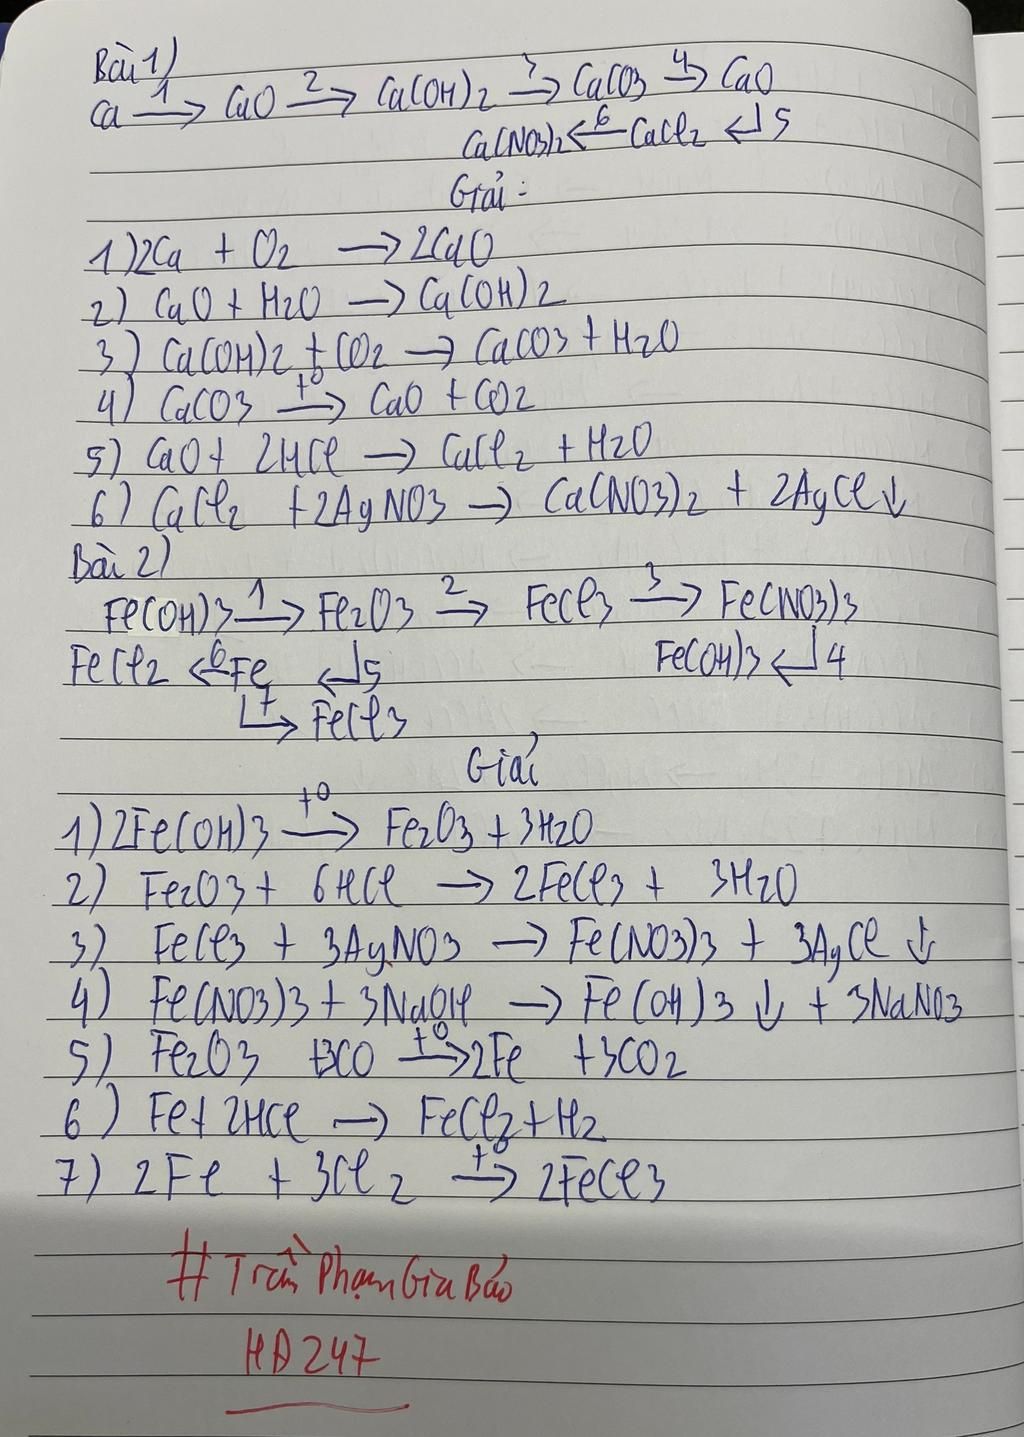 Bài 1)
Ca 1→ CaO 2→ Ca(OH)2 3→ CaCO3 4→ CaO
Ca(NO3)2 ←6 CaCl2 ↲ 5
Giải:
1) 2Ca + O2 → 2CaO
2) CaO + H2O → Ca(OH)2
3) Ca(OH)2 + CO2 → CaCO3 + H2O
4) CaCO3 t0→ CaO + CO2
5) CaO + 2HCl → CaCl2 + H2O
6) CaCl2 + 2AgNO3 → Ca(NO3)2 + 2AgCl↓
Bài 2)
Fe(OH)3 1→ Fe2O3 2→ FeCl3 3→ Fe(NO3)3
FeCl2 ←6 Fe ↲ 5 Fe(OH)3 ↲ 4
7→ FeCl3
Giải
1) 2Fe(OH)3 t0→ Fe2O3 + 3H2O
2) Fe2O3 + 6HCl → 2FeCl3 + 3H2O
3) FeCl3 + 3AgNO3 → Fe(NO3)3 + 3AgCl ↓
4) Fe(NO3)3 + 3NaOH → Fe(OH)3 ↓ + 3NaNO3
5) Fe2O3 +3CO t0→ 2Fe +3CO2
6) Fe + 2HCl → FeCl2 + H2
7) 2Fe + 3Cl2 t0→ 2FeCl3
#Trần Phạm Gia Bảo
HĐ247